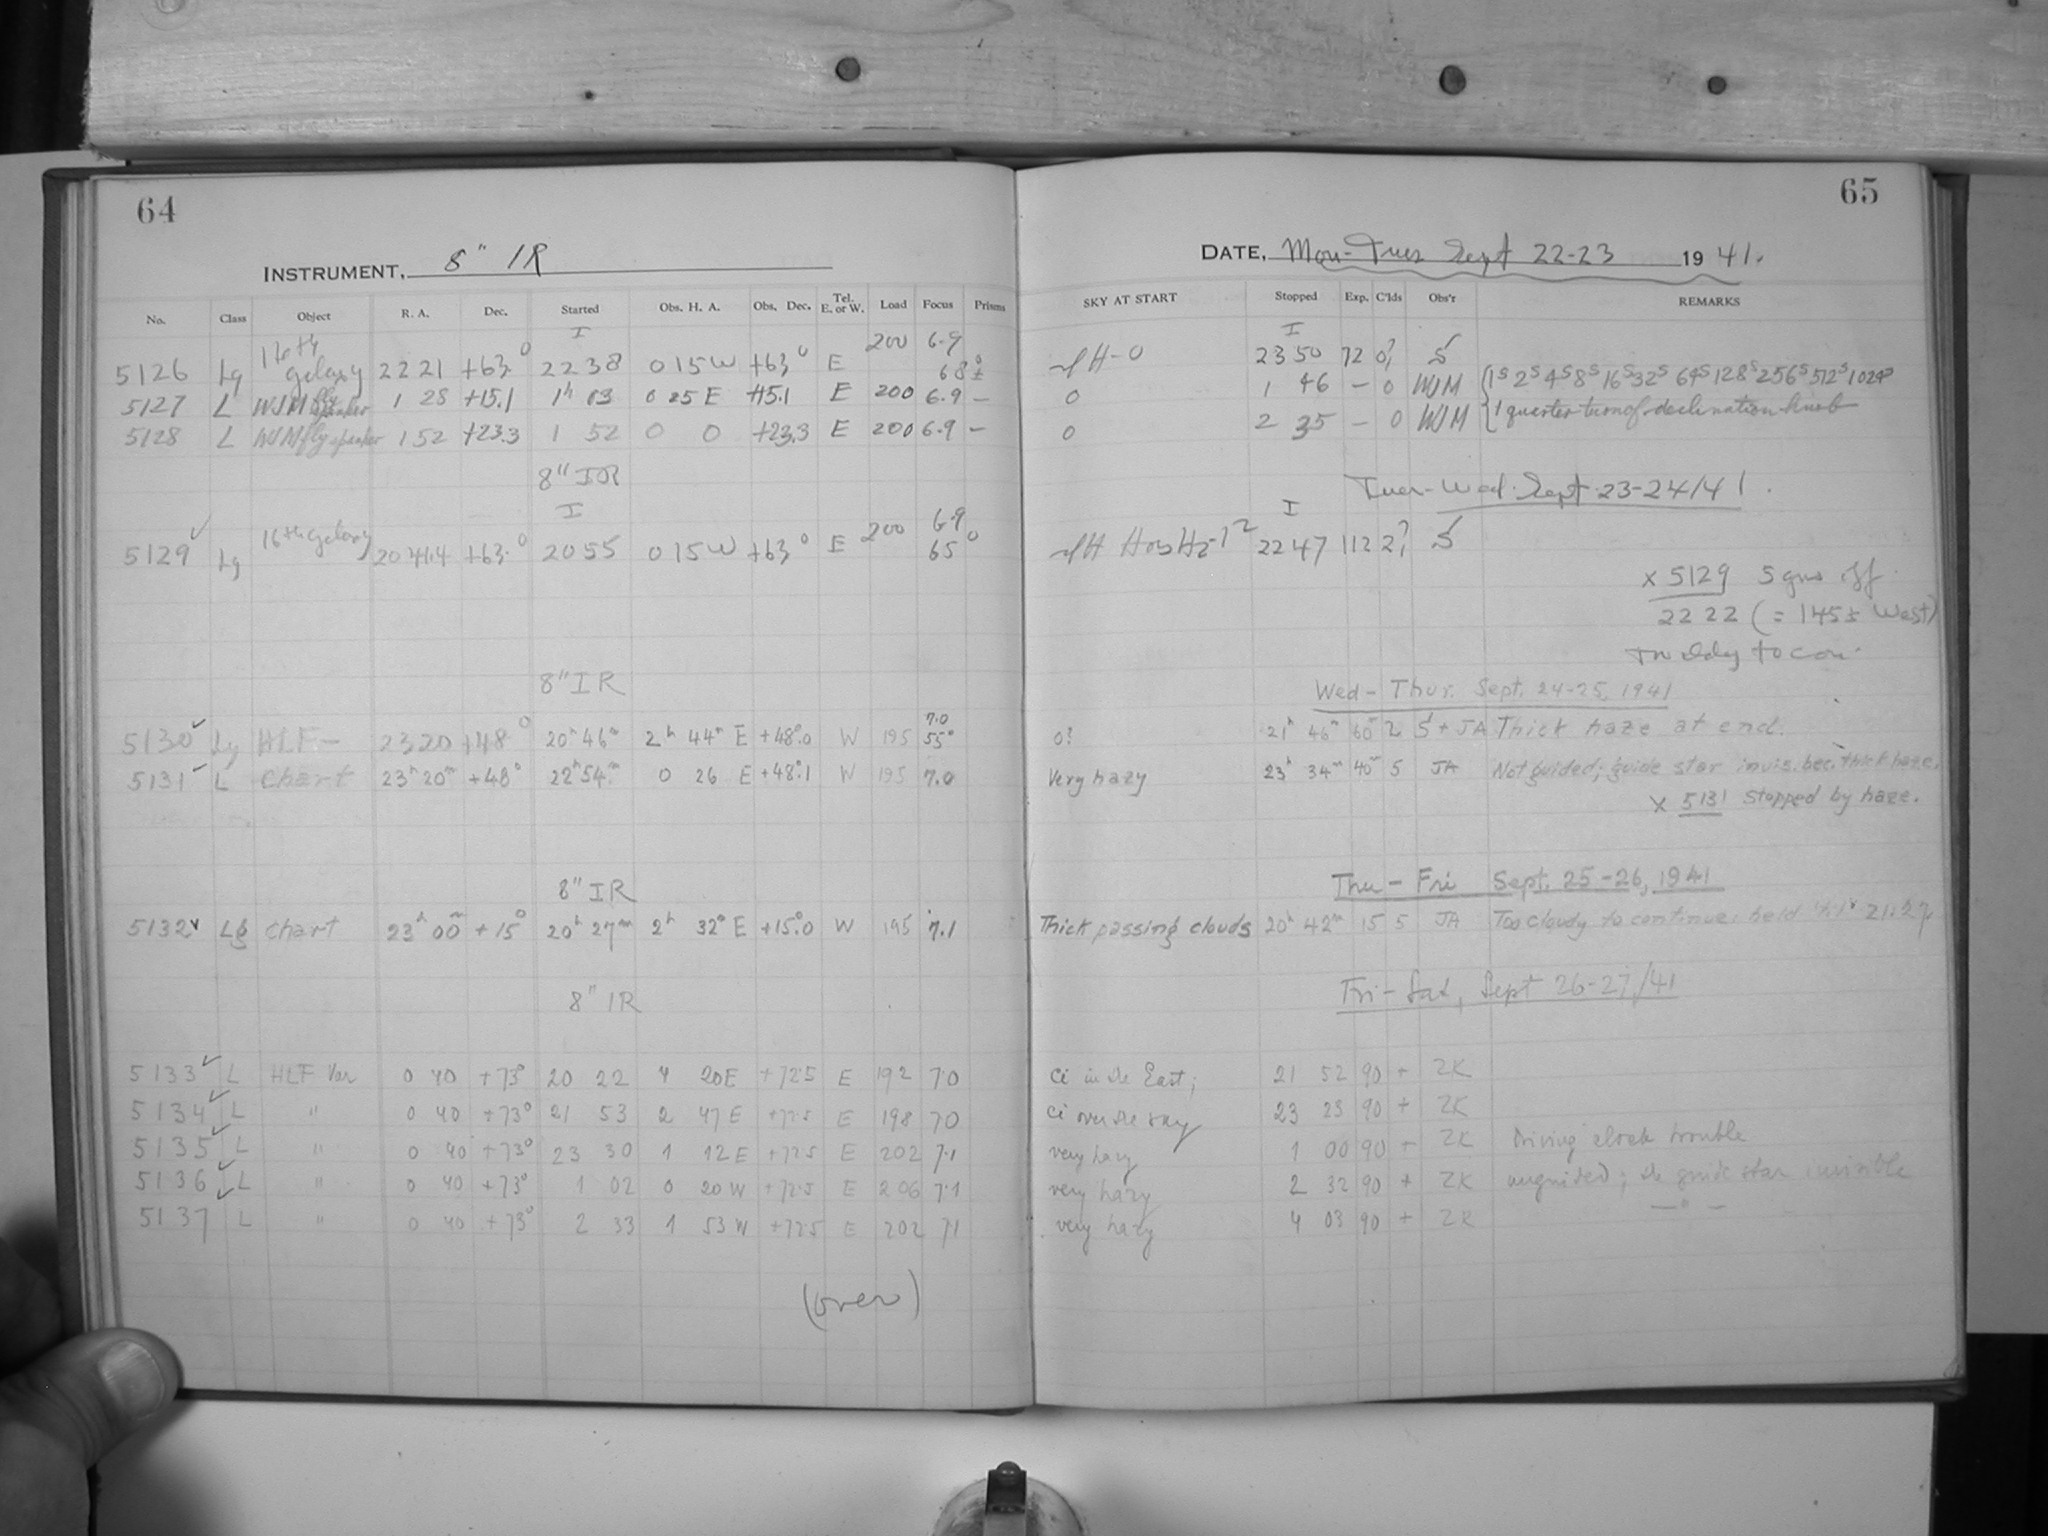 64
INSTRUMENT, 8" IR
No. Class Object R. A. Dec. Started Obs. H. A. Obs. Dec. Tel. E. or W. Load Focus Prisms
I
5126 Lg 16th galaxy 22 21 +63.° 22 38 0 15 W +63° E 200 6.9 68°
5127 L WJM 1 28 +15.1 1h 03 0 25 E +15.1 E 200 6.9 —
5128 L WJM fly spanker 1 52 +23.3 1 52 0 0 +23.3 E 200 6.9 —
8" IR
I
5129 Lg 16th galaxy 20 41.4 +63.° 20 55 0 15 W +63° E 200 6.9 65°
8" IR
5130 Lg HLF— 23 20 +48° 20h 46m 2h 44m E +48°.0 W 195 7.0 55°
5131 L Chart 23h 20m +48° 22h 54m 0 26 E +48°.1 W 195 7.0
8" IR
5132 Lg Chart 23h 00m +15° 20h 27m 2h 32m E +15°.0 W 195 7.1
8" IR
5133 L HLF Var 0 40 +73° 20 22 4 20 E +72.5 E 192 7.0
5134 L " 0 40 +73° 21 53 2 47 E +72.5 E 198 7.0
5135 L " 0 40 +73° 23 30 1 12 E +72.5 E 202 7.1
5136 L " 0 40 +73° 1 02 0 20 W +72.5 E 206 7.1
5137 L " 0 40 +73° 2 33 1 53 W +72.5 E 202 7.1
(over)
65
DATE, Mon-Tues Sept 22-23 19 41.
SKY AT START Stopped Exp. C'lds Obs'r REMARKS
I
H-0 23 50 72 0? S
0 1 46 — 0 WJM (1s 2s 4s 8s 16s 32s 64s 128s 256s 512s 1024s
0 2 35 — 0 WJM 1 quarter turn of declination knob
Tues-Wed. Sept 23-24/41.
I
H 22 47 112 2? S
x 5129
22 22 (= West)
to con.
Wed- Thur. Sept. 24-25, 1941
0? 21h 46m 60m 2 S + JA Thick haze at end.
Very hazy 23h 34m 40m 5 JA Not guided; guide star invis. bec. thick haze.
x 5131 Stopped by haze.
Thu - Fri Sept. 25-26, 1941
Thick passing clouds 20h 42m 15 5 JA Too cloudy to continue. held 21:27
Fri- Sat, Sept 26-27/41
Ci in the East; 21 52 90 + ZK
Ci over the sky 23 23 90 + ZK
very hazy 1 00 90 + ZK Driving clock trouble
very hazy 2 32 90 + ZK unguided; the guide star invisible
very hazy 4 03 90 + ZK — " —